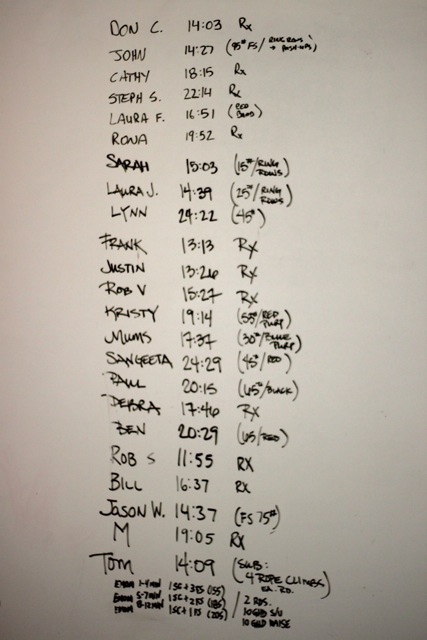 DON C. 14:03 Rx
JOHN 14:27 (95# FS/RING ROWS → PUSH-UPS)
CATHY 18:15 Rx
STEPH S. 22:14 Rx
LAURA F. 16:51 (RED BAND)
RONA 19:52 Rx
SARAH 15:03 (15#/RING ROWS)
LAURA J. 14:39 (25#/RING ROWS)
LYNN 24:22 (45#)
FRANK 13:13 Rx
JUSTIN 13:26 Rx
ROB V 15:27 Rx
KRISTY 19:14 (55#/RED PURP)
MUMS 17:37 (30#/BLUE PURP)
SANGEETA 24:29 (45#/RED)
PAUL 20:15 (65#/BLACK)
DEBRA 17:46 Rx
BEN 20:29 (65/RED)
ROB S 11:55 RX
BILL 16:37 RX
JASON W. 14:37 (FS 75#)
M 19:05 RX
TOM 14:09 (SUB: 4 ROPE CLIMBS EA. RD.)
EMOM 1-4 MIN 1SC+3FS (155)
EMOM 5-7 MIN 1SC+2FS (185) / 2 RDS.
EMOM 8-12 MIN 1SC+1FS (205) 10 GHD S/U
10 GHD RAISE